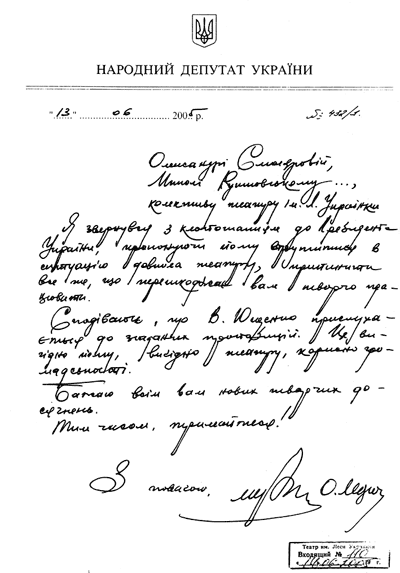 НАРОДНИЙ ДЕПУТАТ УКРАЇНИ
"13" 06 2005 р. № 492/1.
Олександрі Смолровій,
Миколі Рушковському ...,
колективу театру ім. Л. Українки
Я звернувся з клопотанням до Президента
України, пропонуючи йому втрутитися в
ситуацію довкола театру, припинити
все те, що перешкоджає вам творчо пра-
цювати.
Сподіваюсь, що В. Ющенко прислуха-
ється до згаданих пропозицій. Це ви-
гідно йому, вигідно театру, корисно гро-
мадськості.
Бажаю всім вам нових творчих до-
сягнень.
Тим часом, тримайтеся!
З повагою,
Театр ім. Лесі Українки
Входящий № 110